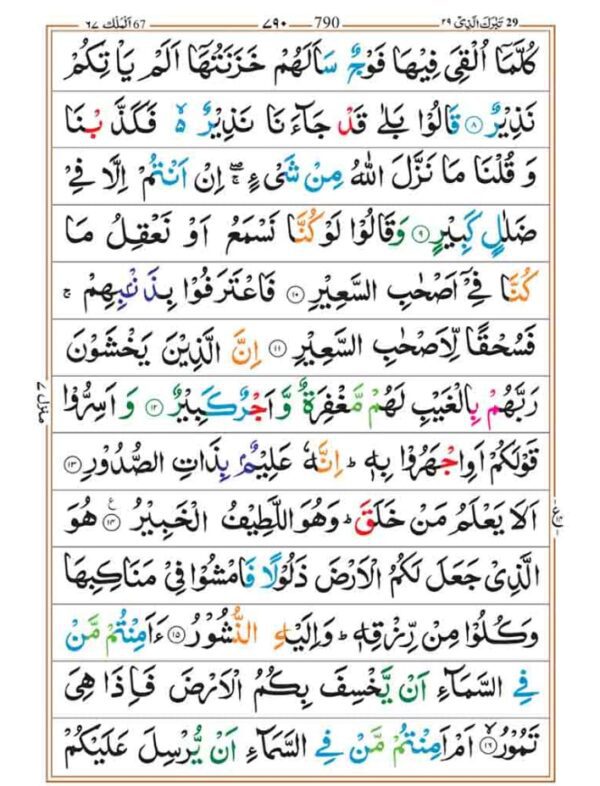 29 تَبٰرَكَ الَّذِیْ ٢٩ 790 ٧٩٠ 67 اَلْمُلْك ٦٧
كُلَّمَاۤ اُلْقِیَ فِیْهَا فَوْجٌ سَاَلَهُمْ خَزَنَتُهَاۤ اَلَمْ یَاْتِكُمْ
نَذِیْرٌ ۝٨ قَالُوْا بَلٰی قَدْ جَآءَنَا نَذِیْرٌ ۙ۬ فَكَذَّبْنَا
وَ قُلْنَا مَا نَزَّلَ اللّٰهُ مِنْ شَیْءٍ ۖۚ اِنْ اَنْتُمْ اِلَّا فِیْ
ضَلٰلٍ كَبِیْرٍ ۝٩ وَقَالُوْا لَوْ كُنَّا نَسْمَعُ اَوْ نَعْقِلُ مَا
كُنَّا فِیْۤ اَصْحٰبِ السَّعِیْرِ ۝١٠ فَاعْتَرَفُوْا بِذَنْۢبِهِمْ ۚ
فَسُحْقًا لِّاَصْحٰبِ السَّعِیْرِ ۝١١ اِنَّ الَّذِیْنَ یَخْشَوْنَ
رَبَّهُمْ بِالْغَیْبِ لَهُمْ مَّغْفِرَةٌ وَّ اَجْرٌ كَبِیْرٌ ۝١٢ وَ اَسِرُّوْا
منزل ٧
قَوْلَكُمْ اَوِاجْهَرُوْا بِهٖ ؕ اِنَّهٗ عَلِیْمٌۢ بِذَاتِ الصُّدُوْرِ ۝١٣
اَلَا یَعْلَمُ مَنْ خَلَقَ ؕ وَهُوَ اللَّطِیْفُ الْخَبِیْرُ ۝١٤ ع هُوَ
الَّذِیْ جَعَلَ لَكُمُ الْاَرْضَ ذَلُوْلًا فَامْشُوْا فِیْ مَنَاكِبِهَا
وَكُلُوْا مِنْ رِّزْقِهٖ ؕ وَاِلَیْهِ النُّشُوْرُ ۝١٥ ءَاَمِنْتُمْ مَّنْ
فِی السَّمَآءِ اَنْ یَّخْسِفَ بِكُمُ الْاَرْضَ فَاِذَا هِیَ
تَمُوْرُ ۙ۝١٦ اَمْ اَمِنْتُمْ مَّنْ فِی السَّمَآءِ اَنْ یُّرْسِلَ عَلَیْكُمْ